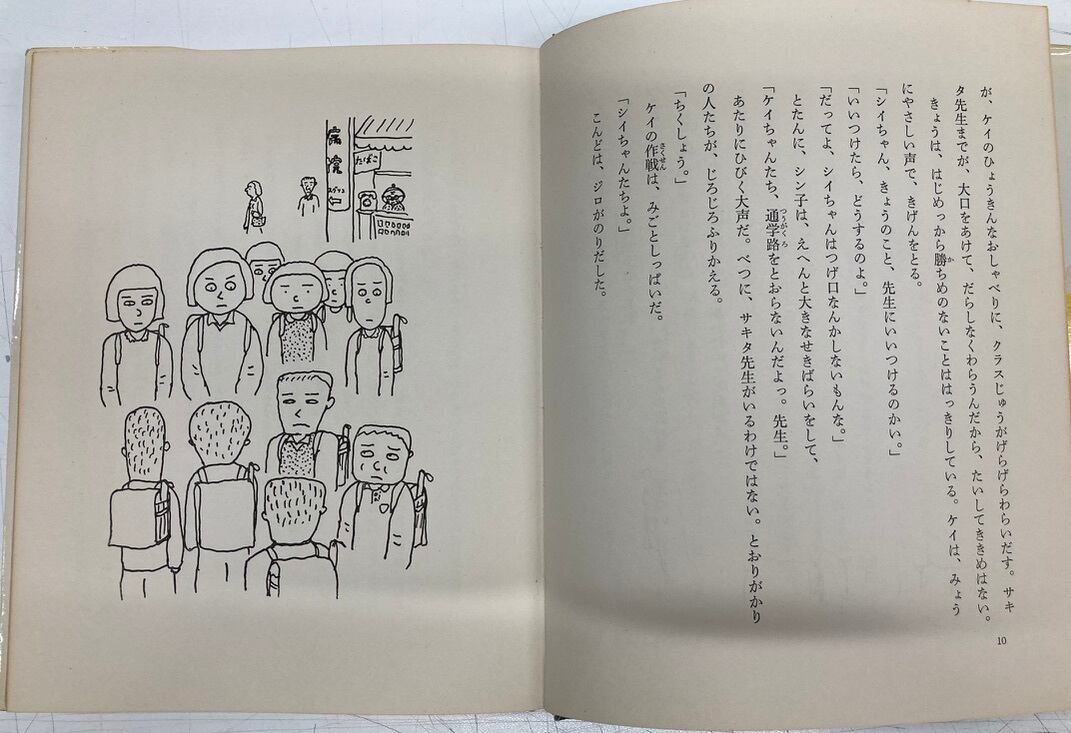 が、ケイのひょうきんなおしゃべりに、クラスじゅうがげらげらわらいだす。サキ
タ先生までが、大口をあけて、だらしなくわらうんだから、たいしてききめはない。
きょうは、はじめっから勝ちめのないことははっきりしている。ケイは、みょう
にやさしい声で、きげんをとる。
「シイちゃん、きょうのこと、先生にいいつけるのかい。」
「いいつけたら、どうするのよ。」
「だってよ、シイちゃんはつげ口なんかしないもんな。」
とたんに、シン子は、えへんと大きなせきばらいをして、
「ケイちゃんたち、通学路をとおらないんだよっ。先生。」
あたりにひびく大声だ。べつに、サキタ先生がいるわけではない。とおりがかり
の人たちが、じろじろふりかえる。
「ちくしょう。」
ケイの作戦は、みごとしっぱいだ。
「シイちゃんたちよ。」
こんどは、ジロがのりだした。
10
たばこ